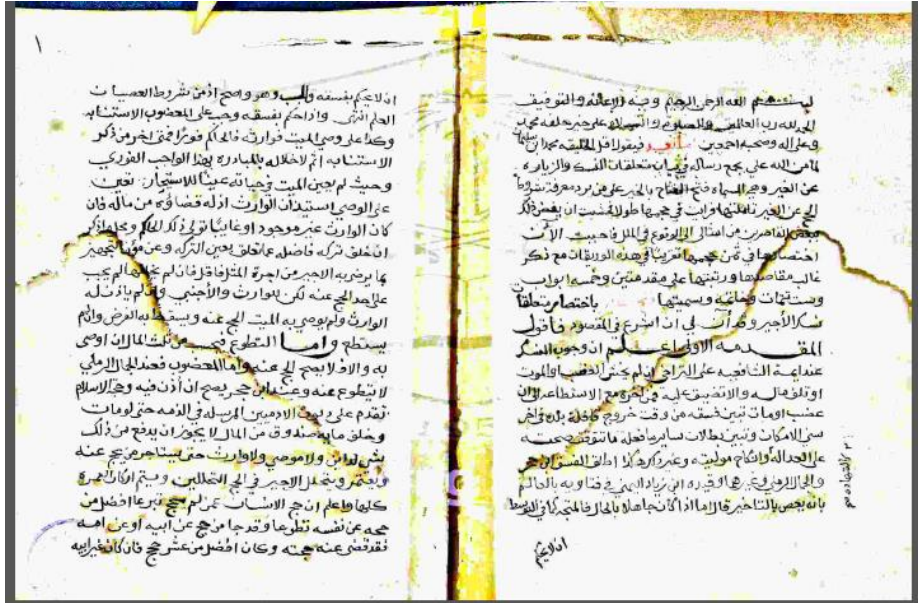 بسم الله الرحمن الرحيم وبه الاعانة والتوفيق
الحمد لله رب العالمين والصلوة والسلام على خير خلقه محمد
وعلى اله وصحبه اجمعين وبعد فيقول اقل الخليقه محمد بن سليمان
لما من الله علي بجمع رساله في بيان متعلقات النسك والزياره
عن الغير وهي المسماه فتح الفتاح بالخير على من يريد معرفة شروط
الحج عن الغير تاملتها فرايت في حجمها طولا
بعض القاصرين من امثالي الى الوقوع في الملل فاحببت الآن
اختصارها في ثمن حجمها تقريبا في هذه الوريقات مع ذكر
غالب مقاصدها ورتبتها على مقدمتين وخمسه ابواب
وست تتمات وخاتمه وسميتها باختصار متعلقات
نسك الأجير وقد آن لي ان اشرع في المقصود فاقول
المقدمه الاولى اعلم ان وجوب النسك
عند ايمة الشافعيه على التراخي ان لم يخش العضب او الموت
او تلف ماله والا تضيق عليه فمن اخره مع الاستطاعه الى ان
عضب او مات تبين فسقه من وقت خروج قافلة بلده في اخر
سني الامكان وتبين بطلان ساير ما فعله مما تتوقف صحته
على العداله والنكاح موليته وغير ذلك كذا اطلق الفسق ابن حجر
والجمال الرملي وغيرهما وقيده ابن زياد اليمني في فتاويه بالعالم
بانه يعصي بالتاخير قال اما اذا كان جاهلا بالحال فالمتجه كما في التوسط
ان لا يحكم
١
ان لا يحكم بفسقه وهو واضح اذ من شروط العصيان
العلم انتهى واذا حكم بفسقه وجب على المعضوب الاستنابه
وكذا على وصي الميت فوارثه فالحاكم فورا فمتى اخر من ذكر
الاستنابه اثم لاخلاله بالمبادره بهذا الواجب الفوري
وحيث لم يعين الميت في حياته عينا للاستيجار تعين
على الوصي استيذان الوارث اذ له قضاؤه من ماله فان
كان الوارث غير موجود او غايبا تولى ذلك الحاكم ومحل ما ذكر
ان خلف تركه فاضله عما تعلق بعين التركه وعن مؤن تجهيز
بما يرضى به الاجير من اجرة المثل فاقل فان لم يخلفها لم يجب
على احد الحج عنه لكن للوارث والأجنبي وان لم ياذن له
الوارث ولم يوصي به الميت الحج عنه ويسقط به الفرض وان لم
يستطع واما التطوع فيجب من ثلث المال ان اوصى
به والا فلا يصح الحج عنه واما المعضوب فعند الجمال الرملي
لا يتطوع عنه وعند ابن حجر يصح ان أذن فيه وحجة الاسلام
تقدم على ديون الادميين المرسله في الذمه حتى لو مات
وخلف ما به صندوق من المال لا يجوز ان يدفع من ذلك
شي لداين ولا موصي ولا وارث حتى يستاجر من يحج عنه
ويعتمر ويتحلل الاجير في الحج التحللين ويتم اركان العمره
كلها واعلم ان حج الانسان عمن لم يحج تبرعا افضل من
حجه عن نفسه تطوعا وقد جا من حج عن ابيه او عن امه
فقد قضى عنه حجته وكان افضل من عشر حجج فان كان غير ابيه